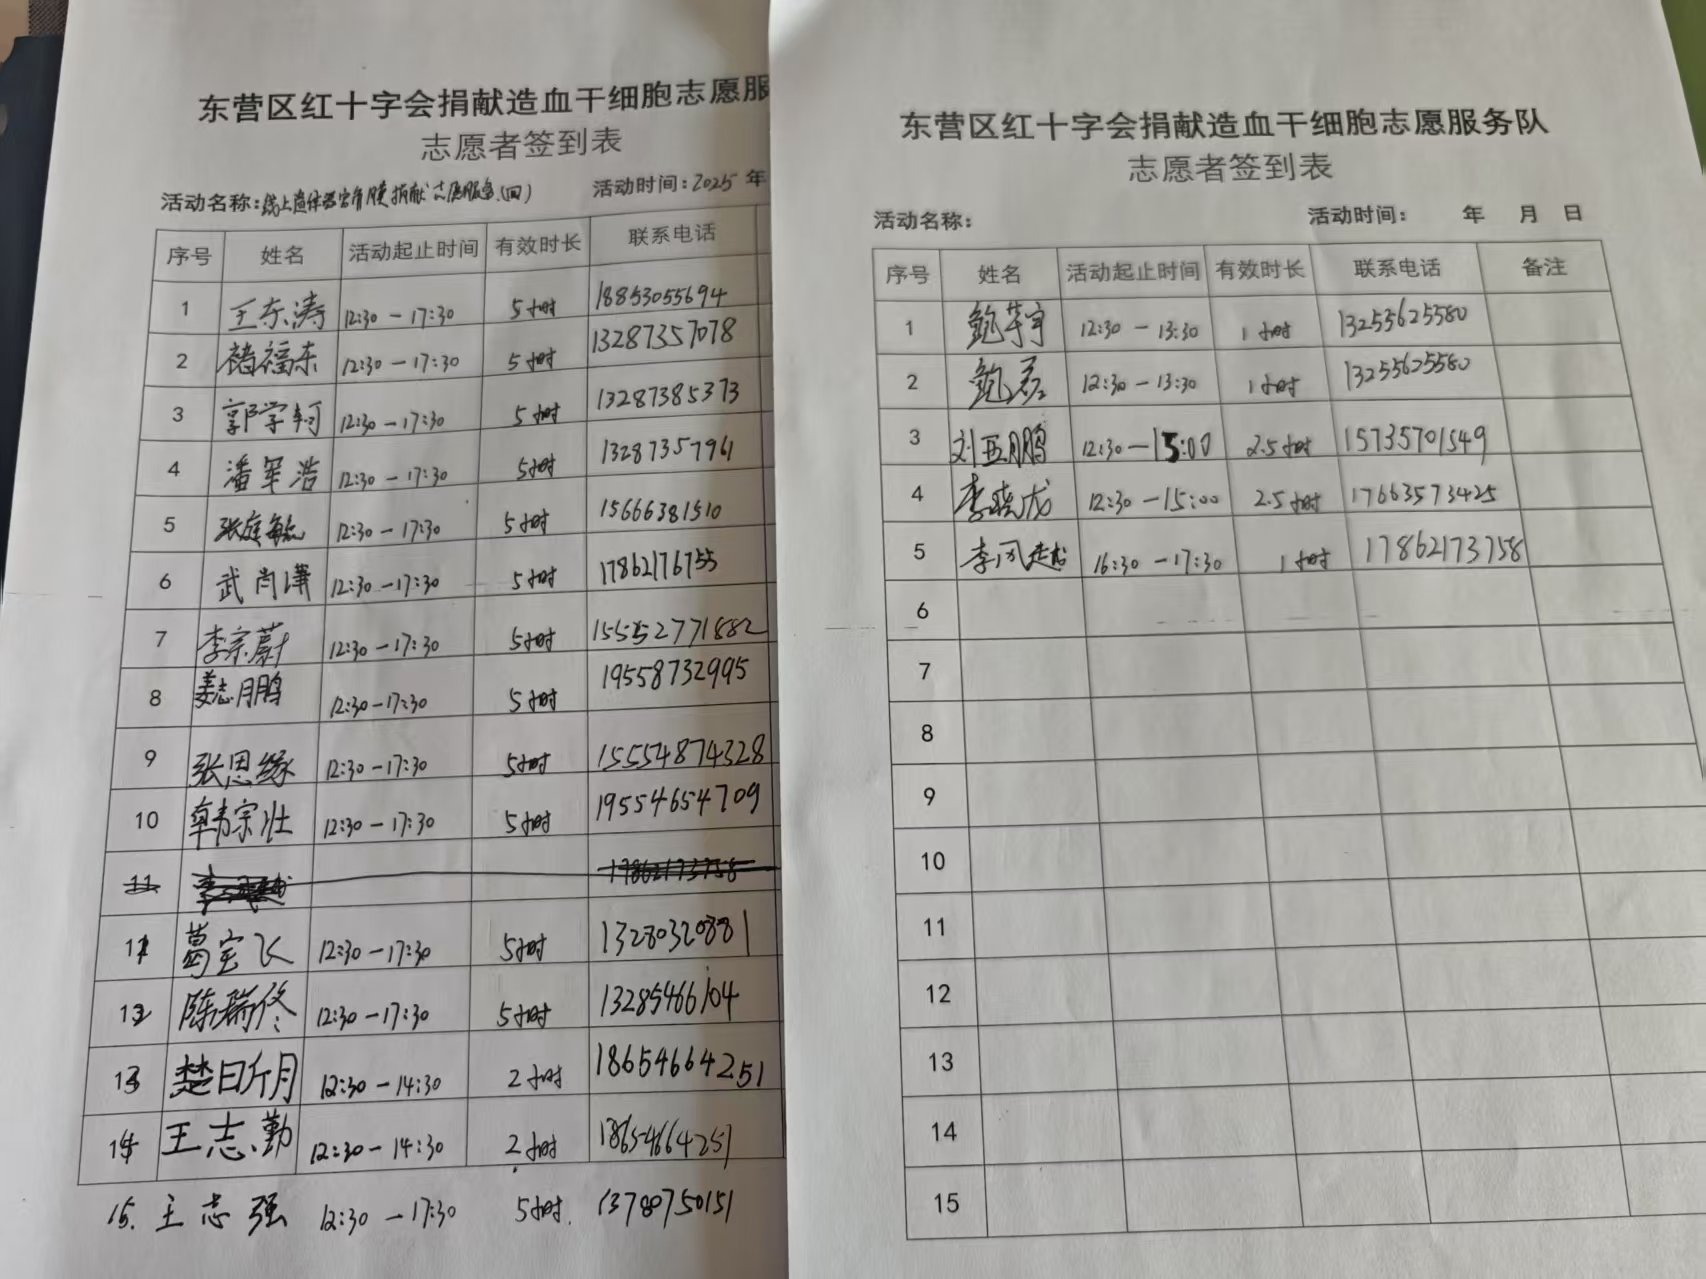 东营区红十字会捐献造血干细胞志愿服
志愿者签到表
活动名称:线上遗体器官角膜捐献志愿服务(四) 活动时间:2025 年
序号 姓名 活动起止时间 有效时长 联系电话
1 王东涛 12:30-17:30 5小时 18853055694
2 褚福东 12:30-17:30 5小时 13287357078
3 郭学轲 12:30-17:30 5小时 13287385373
4 潘军浩 12:30-17:30 5小时 13287357961
5 张庭毓 12:30-17:30 5小时 15666381510
6 武尚谦 12:30-17:30 5小时 17862176755
7 李宗蔚 12:30-17:30 5小时 15552771882
8 姜志鹏 12:30-17:30 5小时 19558732995
9 张恩缘 12:30-17:30 5小时 15554874328
10 韩宗壮 12:30-17:30 5小时 19554654709
11 17862173758
11 葛宝飞 12:30-17:30 5小时 13280320881
12 陈瑞佟 12:30-17:30 5小时 13285466104
13 楚曰斤月 12:30-14:30 2小时 18654664251
14 王志勤 12:30-14:30 2小时 18654664251
15. 王志强 12:30-17:30 5小时. 13780750151
东营区红十字会捐献造血干细胞志愿服务队
志愿者签到表
活动名称: 活动时间: 年 月 日
序号 姓名 活动起止时间 有效时长 联系电话 备注
1 鲍华宇 12:30-13:30 1小时 13255625580
2 鲍磊 12:30-13:30 1小时 13255625580
3 刘亚鹏 12:30-15:00 2.5小时 15735701549
4 李晓龙 12:30-15:00 2.5小时 17663573425
5 李风 16:30-17:30 1小时 17862173758
6
7
8
9
10
11
12
13
14
15